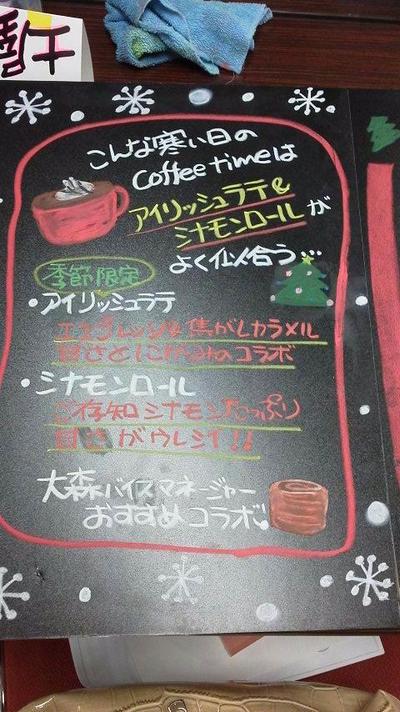 こんな寒い日の
Coffee timeは
アイリッシュラテ&
シナモンロールが
よく似合う…
季節限定
・アイリッシュラテ
エスプレッソ&焦がしカラメル
甘さとにがみのコラボ
・シナモンロール
ご存知シナモンたっぷり
甘さがウレシイ!!
大森バイスマネージャー
おすすめコラボ